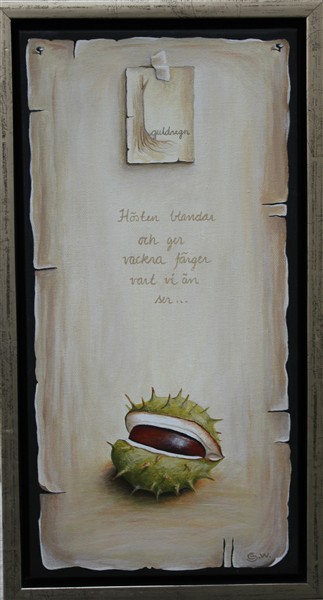 guldregn
Hösten blandar
och ger
vackra färger
vart vi än
ser...